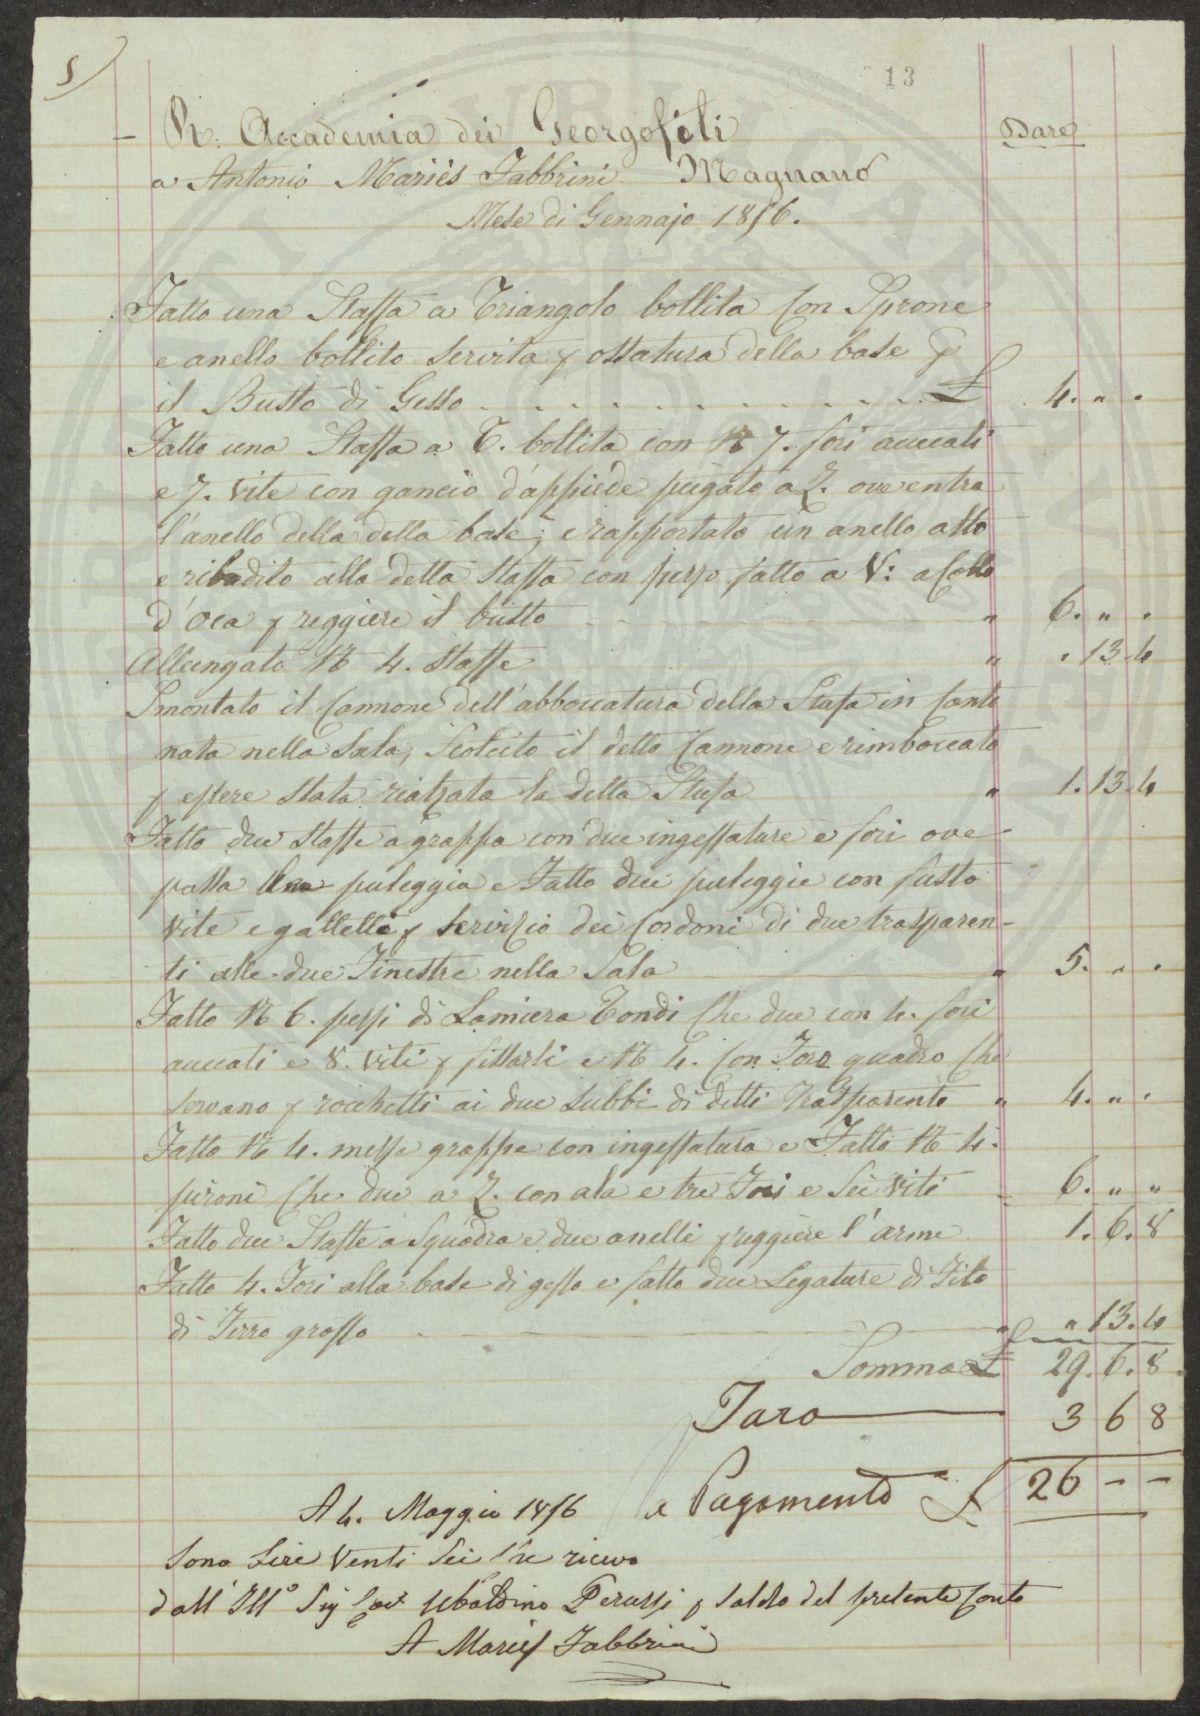 5)
13
R. Accademia dei Georgofili Dare
a Antonio Mariès Fabbrini Magnano
Mese di Gennajo 1856.
Fatto una Staffa a Triangolo bollita Con Sprone
e anello bollito servita p ossatura della base p
il Busto di Gesso £ 4. " "
Fatto una Staffa a T. bollita con N° 7. fori accecati
e 7. Vite con gancio d'appiede piegato a Z. ove entra
l'anello della detta base; e rapportato un anello alto
e ribadito alla detta Staffa con pezzo fatto a V: a Collo
d'Oca p reggiere il busto " 6. " "
Allungato N° 4. Staffe " " 13.4
Smontato il Cannone dell'abboccatura della Stufa in Canto
nata nella Sala, Scolcito il detto Cannone e rimboccato
p essere stata rialzata la detta Stufa " 1.13.4
Fatto due Staffe a grappa con due ingessature e fori ove
passa Una puleggia e Fatto due puleggie con fusto
Vite e galletti p Servizio dei Cordoni di due trasparen-
ti alle due Finestre nella Sala " 5. " "
Fatto N° 6. pezzi di Lamiera Tondi Che due con 4. fori
accecati e 8. Viti p fissarli e N° 4. Con Foro quadro Che
servano p rocchetti ai due subbi di detti Trasparenti " 4. " "
Fatto N° 4. mezze grappe con ingessatura e Fatto N° 4.
pironi Che due a Z. con ala e tre Fori e Sei Viti 6. " "
Fatto due Staffe a Squadra e due anelli p reggiere l'arme 1.6.8
Fatto 4. Fori alla base di gesso e fatto due Legature di Filo
di Ferro grosso " " 13.4
Somma £ 29.6.8.
Tara 3 6 8
e Pagamento £ 26 - -
A 4. Maggio 1856
Sono Lire Venti Sei che ricevo
dall' Ill° Sig Cav Ubaldino Peruzzi p Saldo del presente Conto
A Mariès Fabbrini